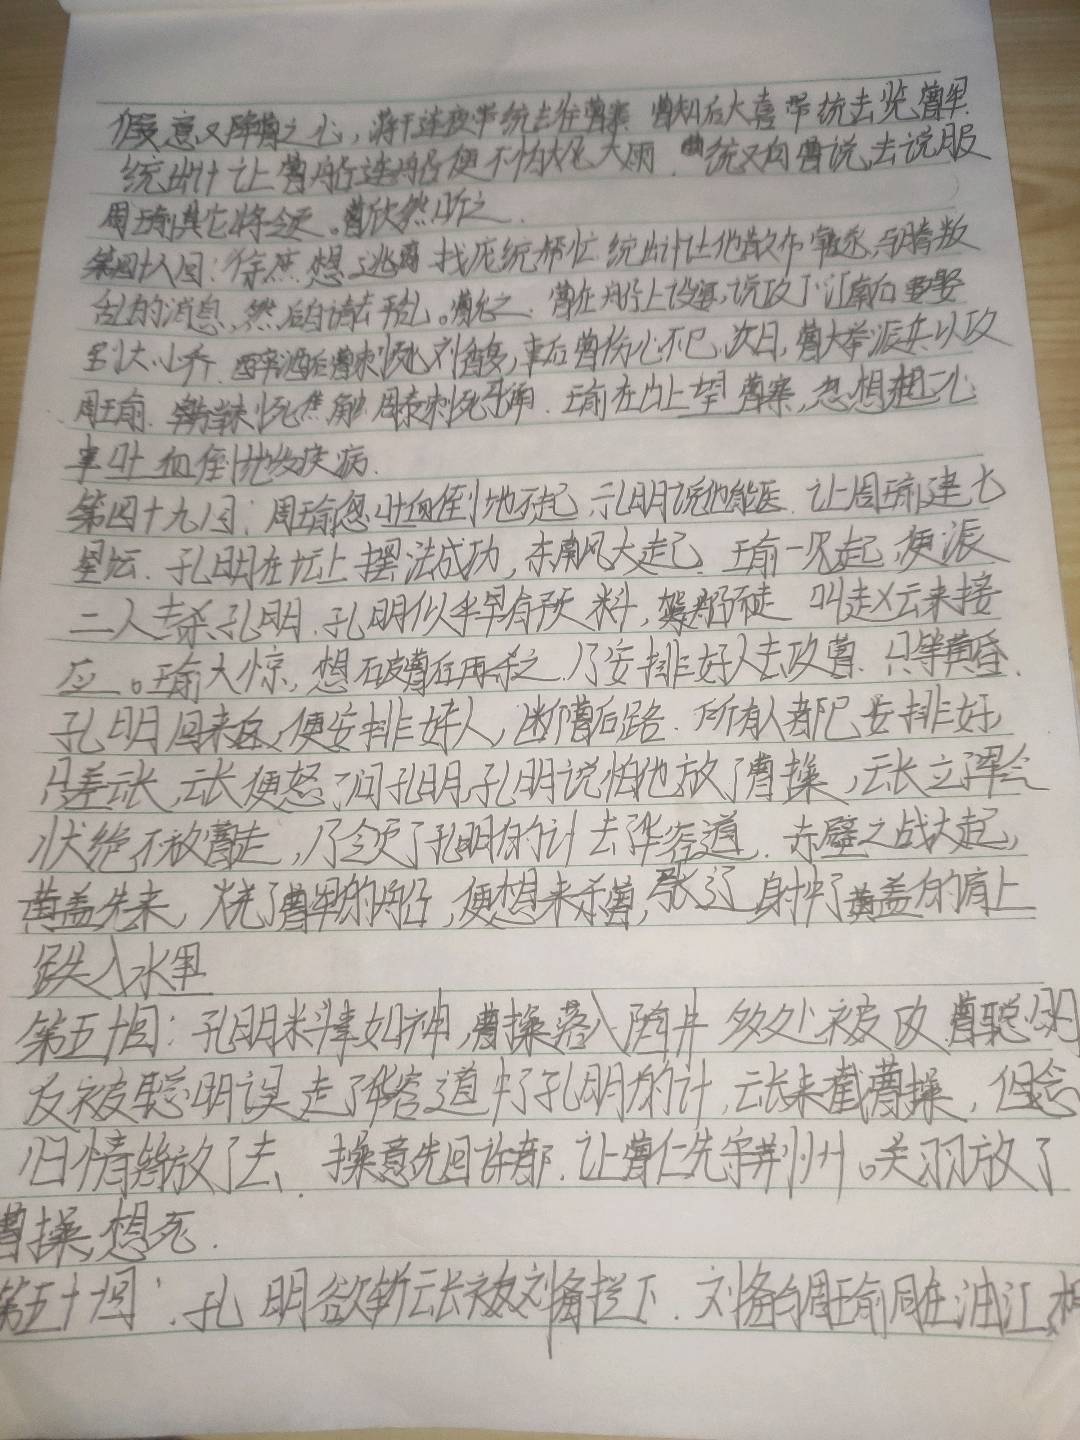 假意又降曹之心，蒋干连夜带统去往曹寨 曹知后大喜 带统去览曹军.
统出计让曹船连船后便不怕大风大雨. 统又向曹说去说服
周瑜其它将领。曹欣然听之.
第四十八回：徐庶想逃离 找庞统帮忙 统出计让他散布 韩遂, 马腾叛
乱的消息，然后自请去平乱。曹允之. 曹在船上设宴，说攻下江南后要娶
大小乔. 醉酒后曹刺死刘馥，事后曹伤心不已，次日，曹大举派兵以攻
周瑜. 韩当刺死焦触 周泰刺死. 瑜在山上望曹寨，忽想起一心
事吐血倒地发疾病.
第四十九回：周瑜忽吐血倒地不起 孔明说他能医. 让周瑜建七
星坛. 孔明在坛上摆法成功，东南风大起. 瑜一见起, 便派
二人去杀孔明. 孔明似乎早有预料, 叫赵云来接
应。瑜大惊，想破曹后再杀之. 乃安排好人去攻曹. 只等黄昏.
孔明回来后，便安排好人，断曹后路. 所有人都已安排好,
只差云长，云长便怒了问孔明，孔明说怕他放了曹操，云长立了军令
状绝不放曹走，乃领了孔明的计去华容道. 赤壁之战大起，
黄盖先来，烧了曹军的船，便想来杀曹，张辽 射中了黄盖的肩上
跌入水里
第五十回：孔明料事如神，曹操落入陷井 多处被攻. 曹聪明
反被聪明误 走了华容道 中了孔明的计，云长来截曹操，但念
旧情能放了去. 操意先回许都. 让曹仁先守荆州。关羽放了
曹操，想死.
第五十一回：孔明欲斩云长被刘备拦下. 刘备与周瑜同在油江